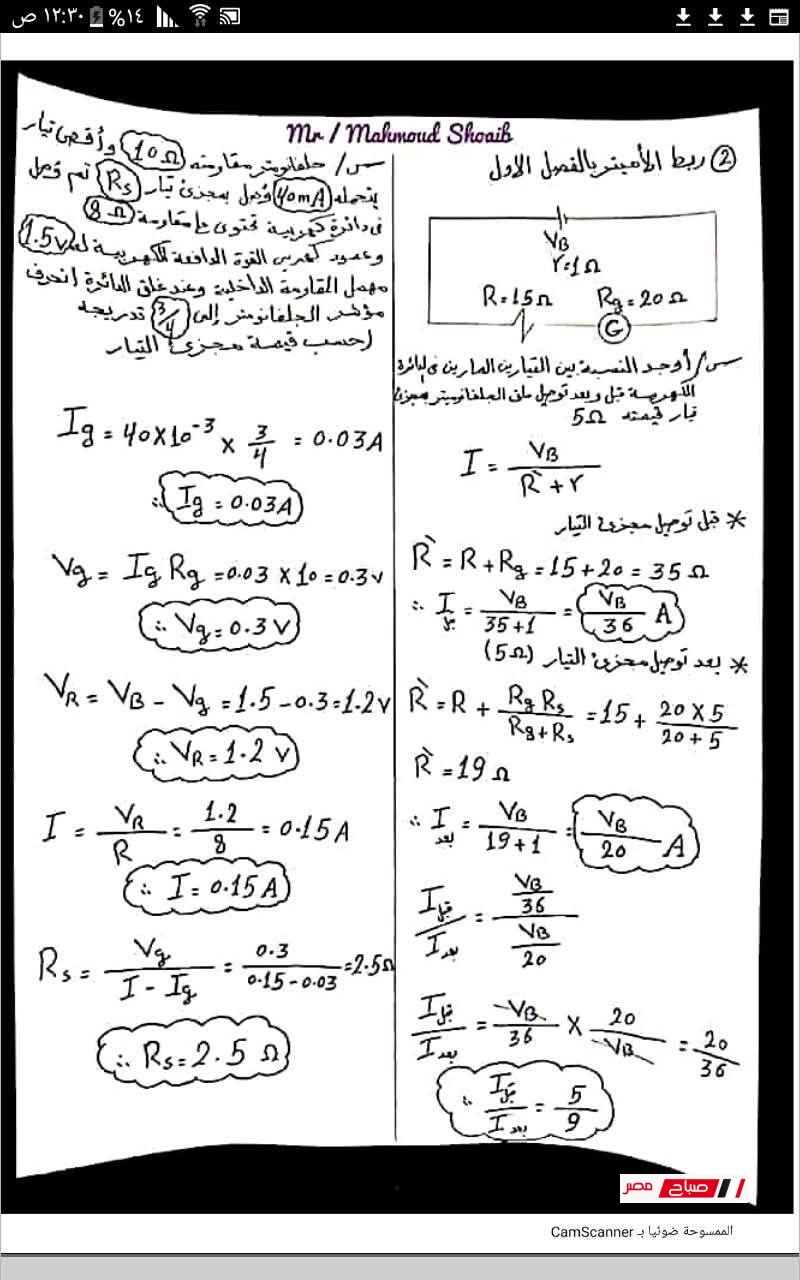 ١٢:٣٠ ص
%١٤
Mr / Mahmoud Shoaib
② ربط الأميتر بالفصل الاول
VB
r=1Ω
R=15Ω Rg=20Ω
G
س/ أوجد النسبة بين التيارين المارين فى الدائرة
الكهربية قبل وبعد توصيل ملف الجلفانوميتر بمجزئ
تيار قيمته 5Ω
I = VB / (R̀ + r)
* قبل توصيل مجزئ التيار
R̀ = R + Rg = 15 + 20 = 35 Ω
∴ I قبل = VB / (35+1) = VB / 36 A
* بعد توصيل مجزئ التيار (5Ω)
R̀ = R + Rg Rs / (Rg+Rs) = 15 + 20 × 5 / (20 + 5)
R̀ = 19 Ω
∴ I بعد = VB / (19+1) = VB / 20 A
I قبل / I بعد = (VB / 36) / (VB / 20)
I قبل / I بعد = VB / 36 × 20 / VB = 20 / 36
∴ I قبل / I بعد = 5 / 9
س/ جلفانومتر مقاومته 10Ω وأقصى تيار
يتحمله 40mA وُصل بمجزئ تيار Rs ثم وُصل
فى دائرة كهربية تحتوى على مقاومة 8Ω
وعمود كهربى القوة الدافعة الكهربية له 1.5v
مهمل المقاومة الداخلية وعند غلق الدائرة انحرف
مؤشر الجلفانومتر إلى 3/4 تدريجه
احسب قيمة مجزئ التيار
Ig = 40×10⁻³ × 3/4 = 0.03A
∴ Ig = 0.03A
Vg = Ig Rg = 0.03 × 10 = 0.3v
∴ Vg = 0.3 V
VR = VB - Vg = 1.5 - 0.3 = 1.2v
∴ VR = 1.2 v
I = VR / R = 1.2 / 8 = 0.15A
∴ I = 0.15A
Rs = Vg / (I - Ig) = 0.3 / (0.15 - 0.03) = 2.5Ω
∴ Rs = 2.5 Ω
صباح مصر
الممسوحة ضوئيا بـ CamScanner